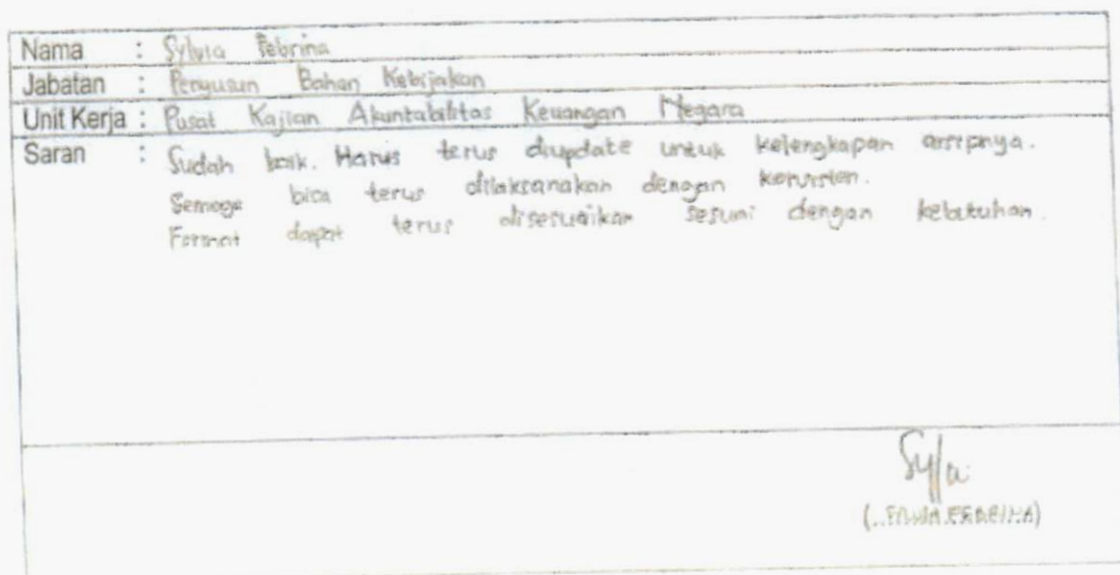 Nama : Sylvia Febrina
Jabatan : Penyusun Bahan Kebijakan
Unit Kerja : Pusat Kajian Akuntabilitas Keuangan Negara
Saran : Sudah baik. Harus terus diupdate untuk kelengkapan arsipnya.
Semoga bisa terus dilaksanakan dengan konsisten.
Format dapat terus disesuaikan sesuai dengan kebutuhan.